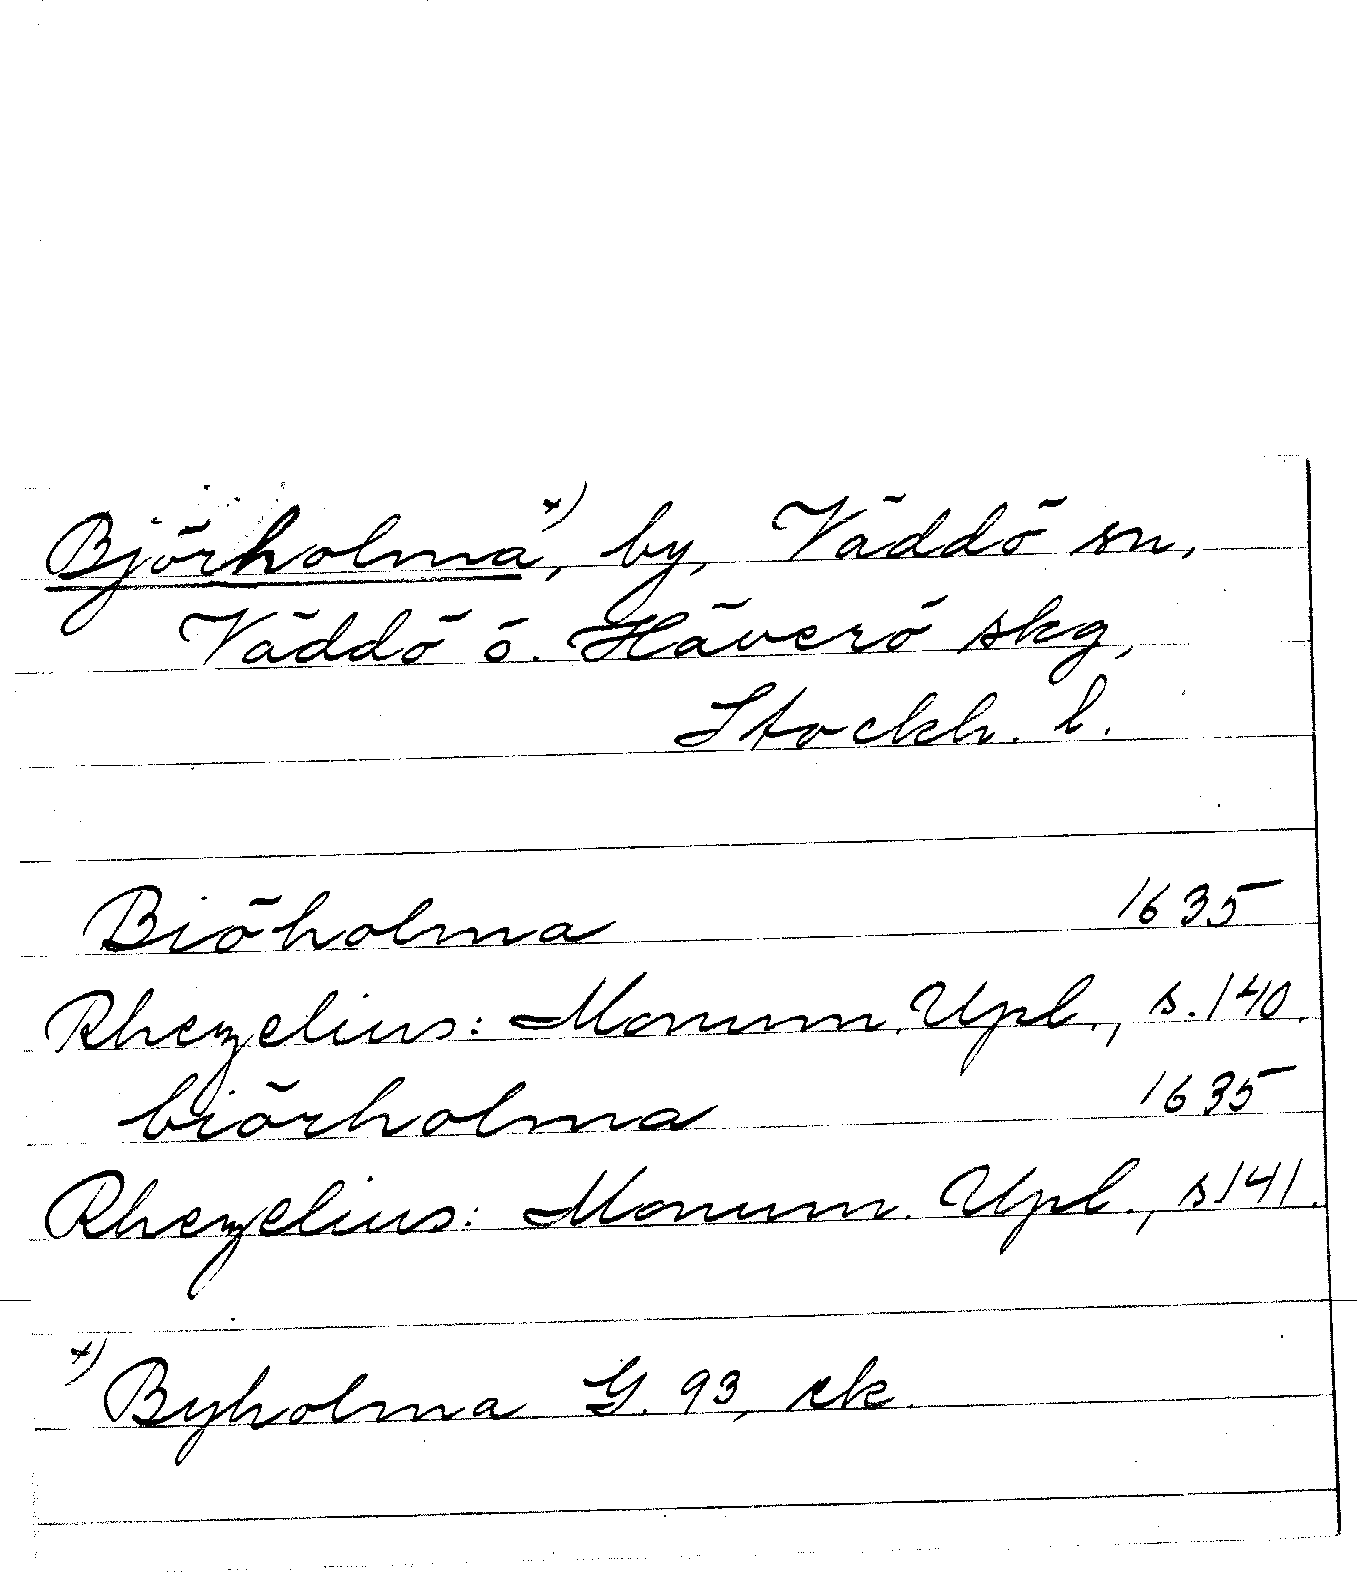 Björholma +), by, Väddö sn,
Väddö o. Häverö skg,
Stockh. l.
Biöholma 1635
Rhezelius: Monum. Upl., s. 140.
biörholma 1635
Rhezelius: Monum. Upl., s 141.
+) Byholma G. 93, ek.